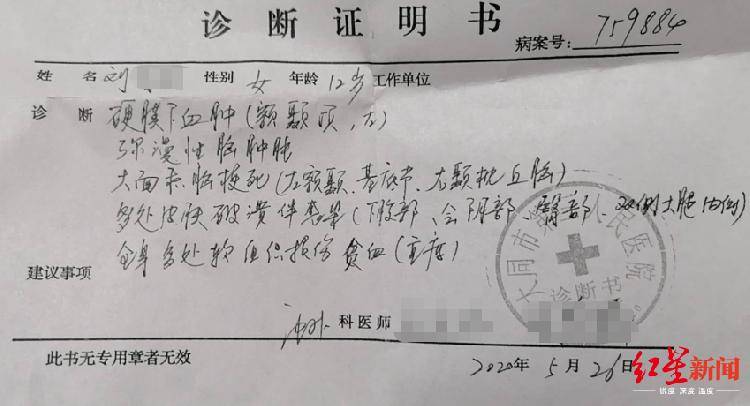 诊断证明书
病案号：759884
姓 名 刘 性别 女 年龄 12岁 工作单位
诊 断 硬膜下血肿（额颞顶，左）
弥漫性脑肿胀
大面积脑梗死（左额颞、基底节、右颞枕丘脑）
多处皮肤破溃伴感染（下腹部、会阴部、臀部、双侧大腿内侧）
全身多处软组织损伤 贫血（重度）
建议事项
大同市 人民医院
诊断书
科医师
此书无专用章者无效
2020年 5月 26日
红星新闻
锐度 深度 温度